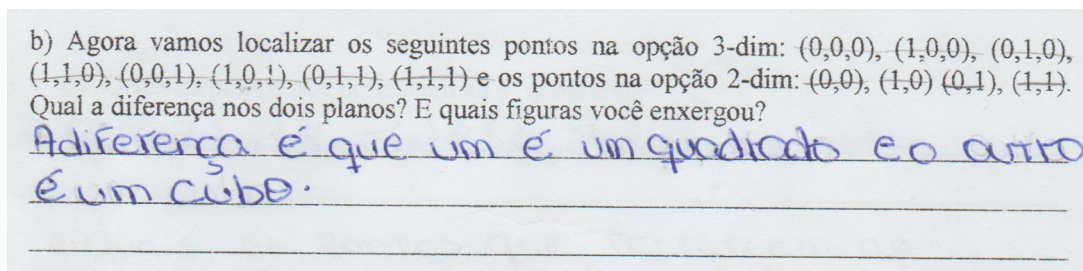 b) Agora vamos localizar os seguintes pontos na opção 3-dim: (0,0,0), (1,0,0), (0,1,0),
(1,1,0), (0,0,1), (1,0,1), (0,1,1), (1,1,1) e os pontos na opção 2-dim: (0,0), (1,0) (0,1), (1,1).
Qual a diferença nos dois planos? E quais figuras você enxergou?
A diferença é que um é um quadrado e o outro
é um cubo.